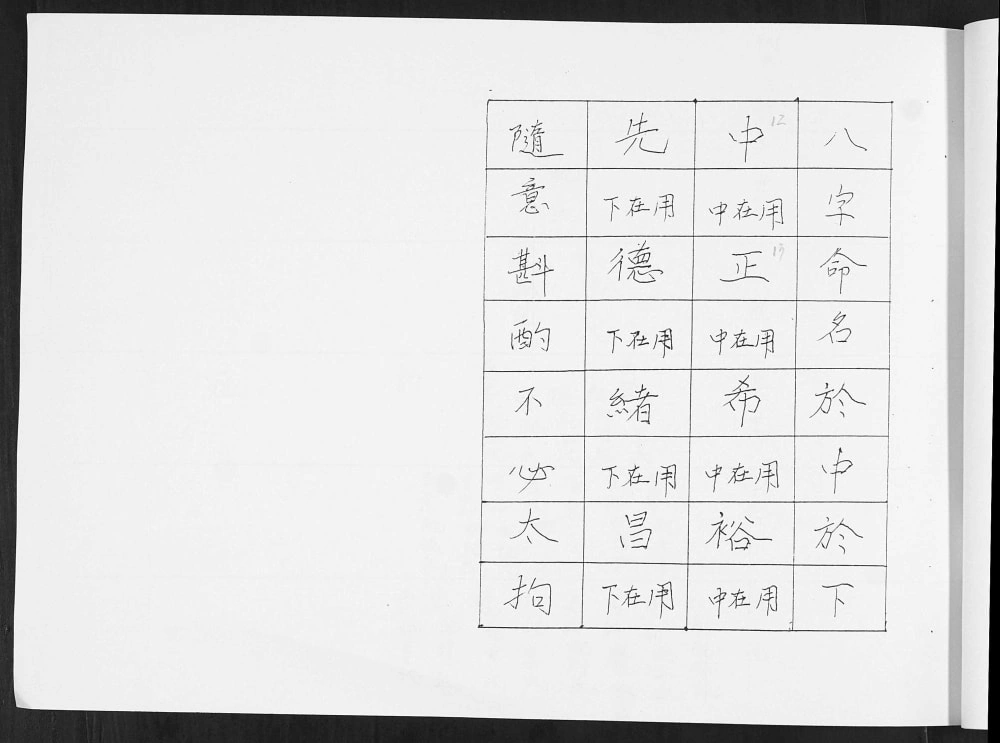 八字命名於中於下
中12中在用正13中在用希中在用裕中在用
先下在用德下在用緒下在用昌下在用
隨意斟酌不必太拘